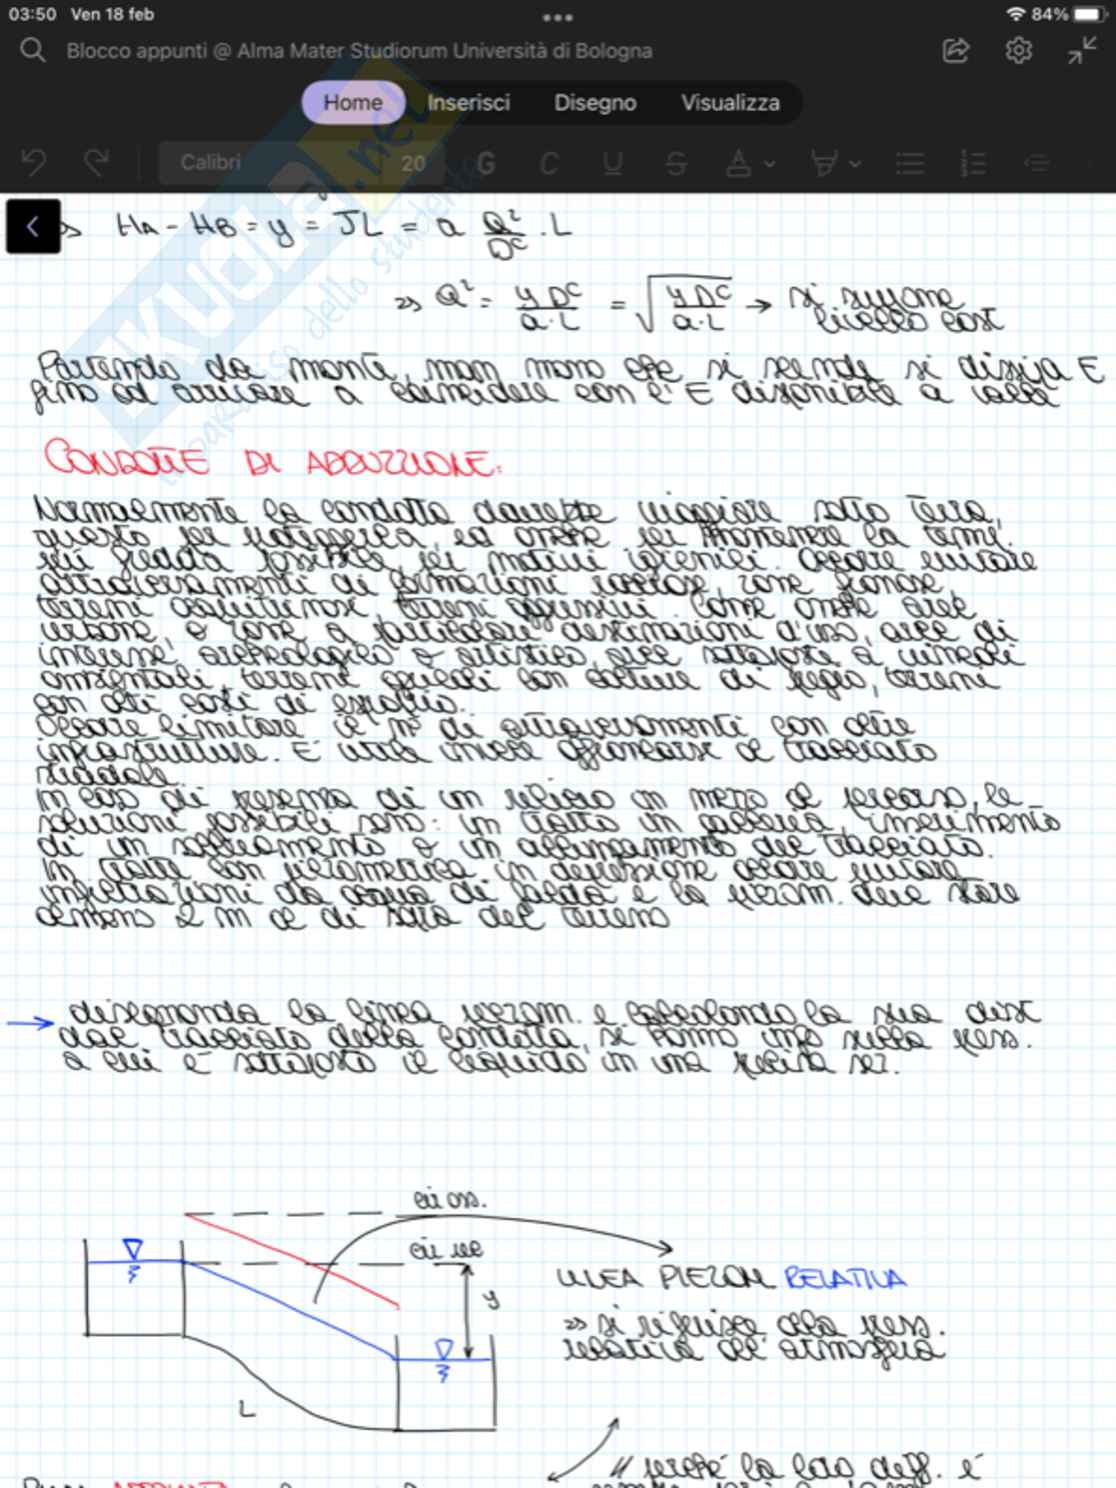 03:50 Ven 18 feb
84%
Blocco appunti @ Alma Mater Studiorum Università di Bologna
Home Inserisci Disegno Visualizza
Calibri 20 G C U S A
SKUOLA.net
dello studente
=> HA - HB = y = JL = a Q²/D^c · L
=> Q² = y D^c / a·L = √(y D^c / a·L) → si suppone
livello cost
Partendo da monte, man mano che si scende si dissipa E
fino ad arrivare a coincidere con l' E disponibile a valle
CONDOTTE DI ADDUZIONE:
Normalmente la condotta dovrebbe viaggiare sotto terra,
questo per ed anche per mantenere la temp.
più fredda possibile, per motivi igienici. Occorre evitare
attraversamenti di formazioni rocciose, zone franose,
terreni acquitrinosi, terreni aggressivi. Come anche aree
urbane, o zone a particolare destinazioni d'uso, aree di
interesse archeologico o artistico, aree sottoposte a vincoli
ambientali, terreni agricoli con colture di pregio, terreni
con alti costi di esproprio.
Occorre limitare il n° di attraversamenti con altre
infrastrutture. E' utile invece affiancarsi al tracciato
stradale.
In caso di presenza di un rilievo in mezzo al percorso, le
soluzioni possibili sono: un tratto in galleria, inserimento
di un sollevamento o un allungamento del tracciato.
In tratte con piezometrica in depressione occorre evitare
infiltrazioni da acqua di falda e la piezom. deve stare
almeno 2 m al di sotto del terreno
→ disegnando la linea piezom. e calcolando la sua dist
dal tracciato della condotta, si hanno info sulla press.
a cui è sottoposto il liquido in una precisa sez.
cii ass.
cii rel
y
L
LINEA PIEZOM RELATIVA
=> si riferisce alla press.
relativa all' atmosfera
perché la loro diff. è